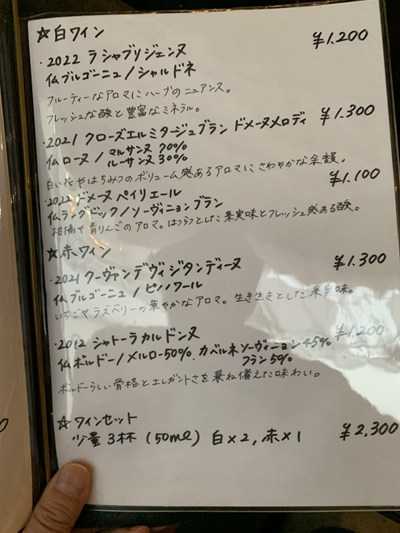 ☆白ワイン
・2022 ラ シャブリジェンヌ ¥1.200
仏ブルゴーニュ/シャルドネ
フルーティーなアロマにハーブのニュアンス。
フレッシュな酸と豊富なミネラル。
・2021 クローズエルミタージュブラン ドメーヌメロディ ¥1.300
仏ローヌ/マルサンヌ 70%
ルーサンヌ 30%
白い花やはちみつのボリューム感あるアロマにさわやかな余韻。
・2022 ドメーヌ ペイリエール ¥1.100
仏ラングドック/ソーヴィニョンブラン
柑橘や青りんごのアロマ。はつらつとした果実味とフレッシュ感ある酸。
☆赤ワイン
・2021 クーヴァンデヴィジタンディーヌ ¥1.300
仏ブルゴーニュ/ピノノワール
いちごやラズベリーの華やかなアロマ。生き生きとした果実味。
・2012 シャトーラカルドンヌ ¥1.200
仏ボルドー/メルロー50%、カベルネソーヴィニョン45%
フラン5%
ボルドーらしい骨格とエレガントさを兼ね備えた味わい。
☆ワインセット
少量3杯(50ml) 白×2,赤×1 ¥2.300